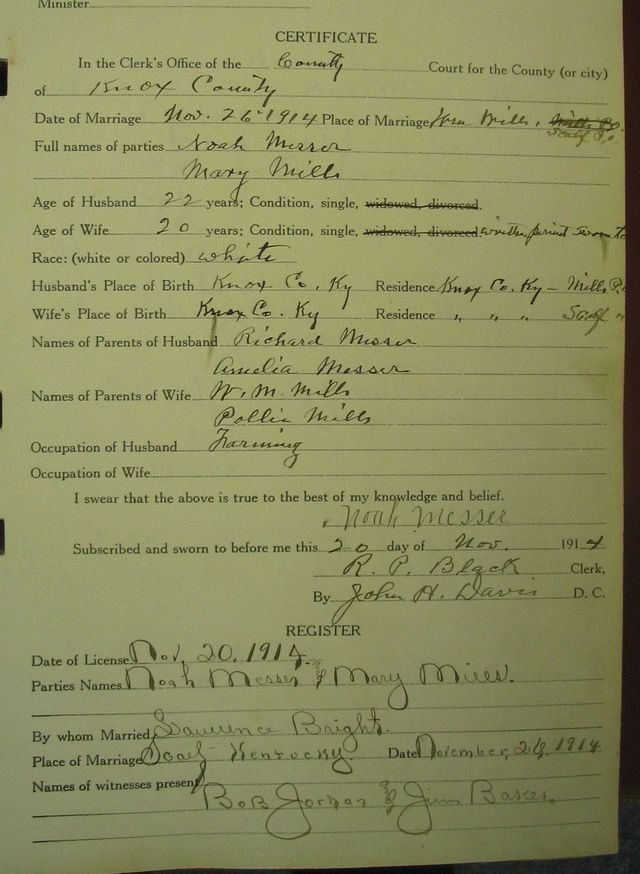 Minister
CERTIFICATE
In the Clerk's Office of the County Court for the County (or city)
of Knox County
Date of Marriage Nov. 26 1914 Place of Marriage Wm Mills, Scalf P.O.
Full names of parties Noah Messer
Mary Mills
Age of Husband 22 years; Condition, single, widowed, divorced.
Age of Wife 20 years; Condition, single, widowed, divorced, sworn to
Race: (white or colored) white
Husband's Place of Birth Knox Co. Ky Residence Knox Co. Ky – Mills P.O.
Wife's Place of Birth Knox Co. Ky Residence " " " Scalf "
Names of Parents of Husband Richard Messer
Amelia Messer
Names of Parents of Wife W. M. Mills
Pollie Mills
Occupation of Husband Farming
Occupation of Wife
I swear that the above is true to the best of my knowledge and belief.
Noah Messer
Subscribed and sworn to before me this 20 day of Nov. 1914
R. P. Black Clerk,
By John H. Davis D. C.
REGISTER
Date of License Nov. 20, 1914
Parties Names Noah Messer & Mary Mills.
By whom Married, Lawrence Bright.
Place of Marriage Scalf Kentucky. Date November, 26, 1914
Names of witnesses present
Bob & Jim